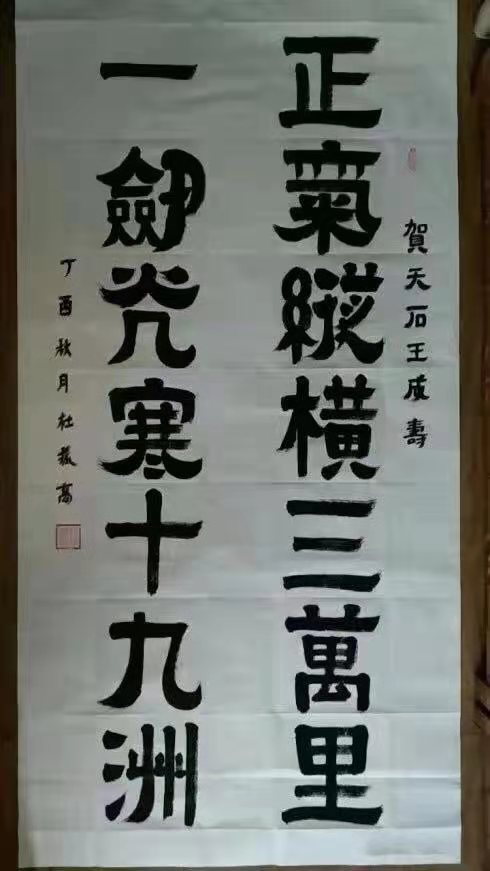 賀天石王成壽
正氣縱橫三萬里
一劍光寒十九洲
丁酉秋月杜*高